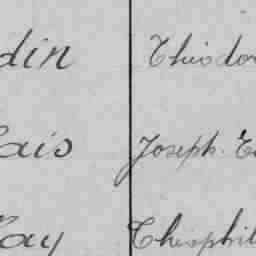 din Théodo
lais Joseph. E
Tay Théophil